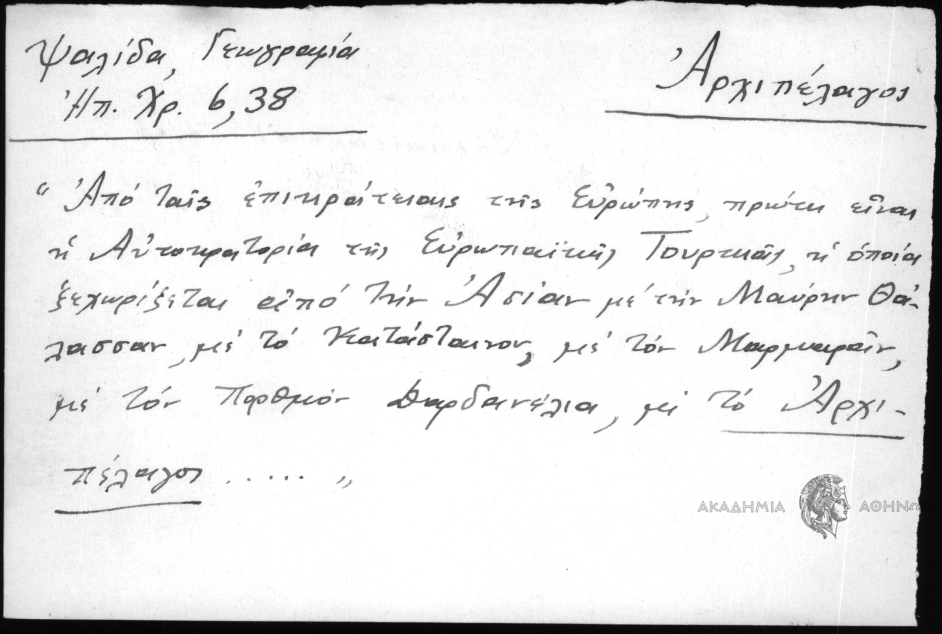 Ψαλίδα, Γεωγραφία
Ἠπ. Χρ. 6, 38
Ἀρχιπέλαγος
"Ἀπό ταῖς ἐπικράτειαις τῆς Εὐρώπης, πρώτη εἶναι
ἡ Αὐτοκρατορία τῆς Εὐρωπαϊκῆς Τουρκίας, ἡ ὁποία
ξεχωρίζεται ἀπό τήν Ἀσίαν μέ τήν Μαύρην Θά-
λασσαν, μέ τό Κατάστενον, μέ τόν Μαρμαρᾶν,
μέ τόν Πορθμόν Δαρδανέλια, μέ τό Ἀρχι-
πέλαγος ..... "
ΑΚΑΔΗΜΙΑ ΑΘΗΝΩ